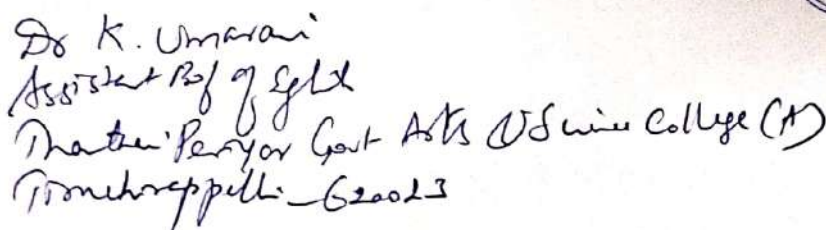 Dr K. Umarani
Assistant Prof of English
Thanthai Periyar Govt Arts & Science College (A)
Tiruchirappalli - 620023